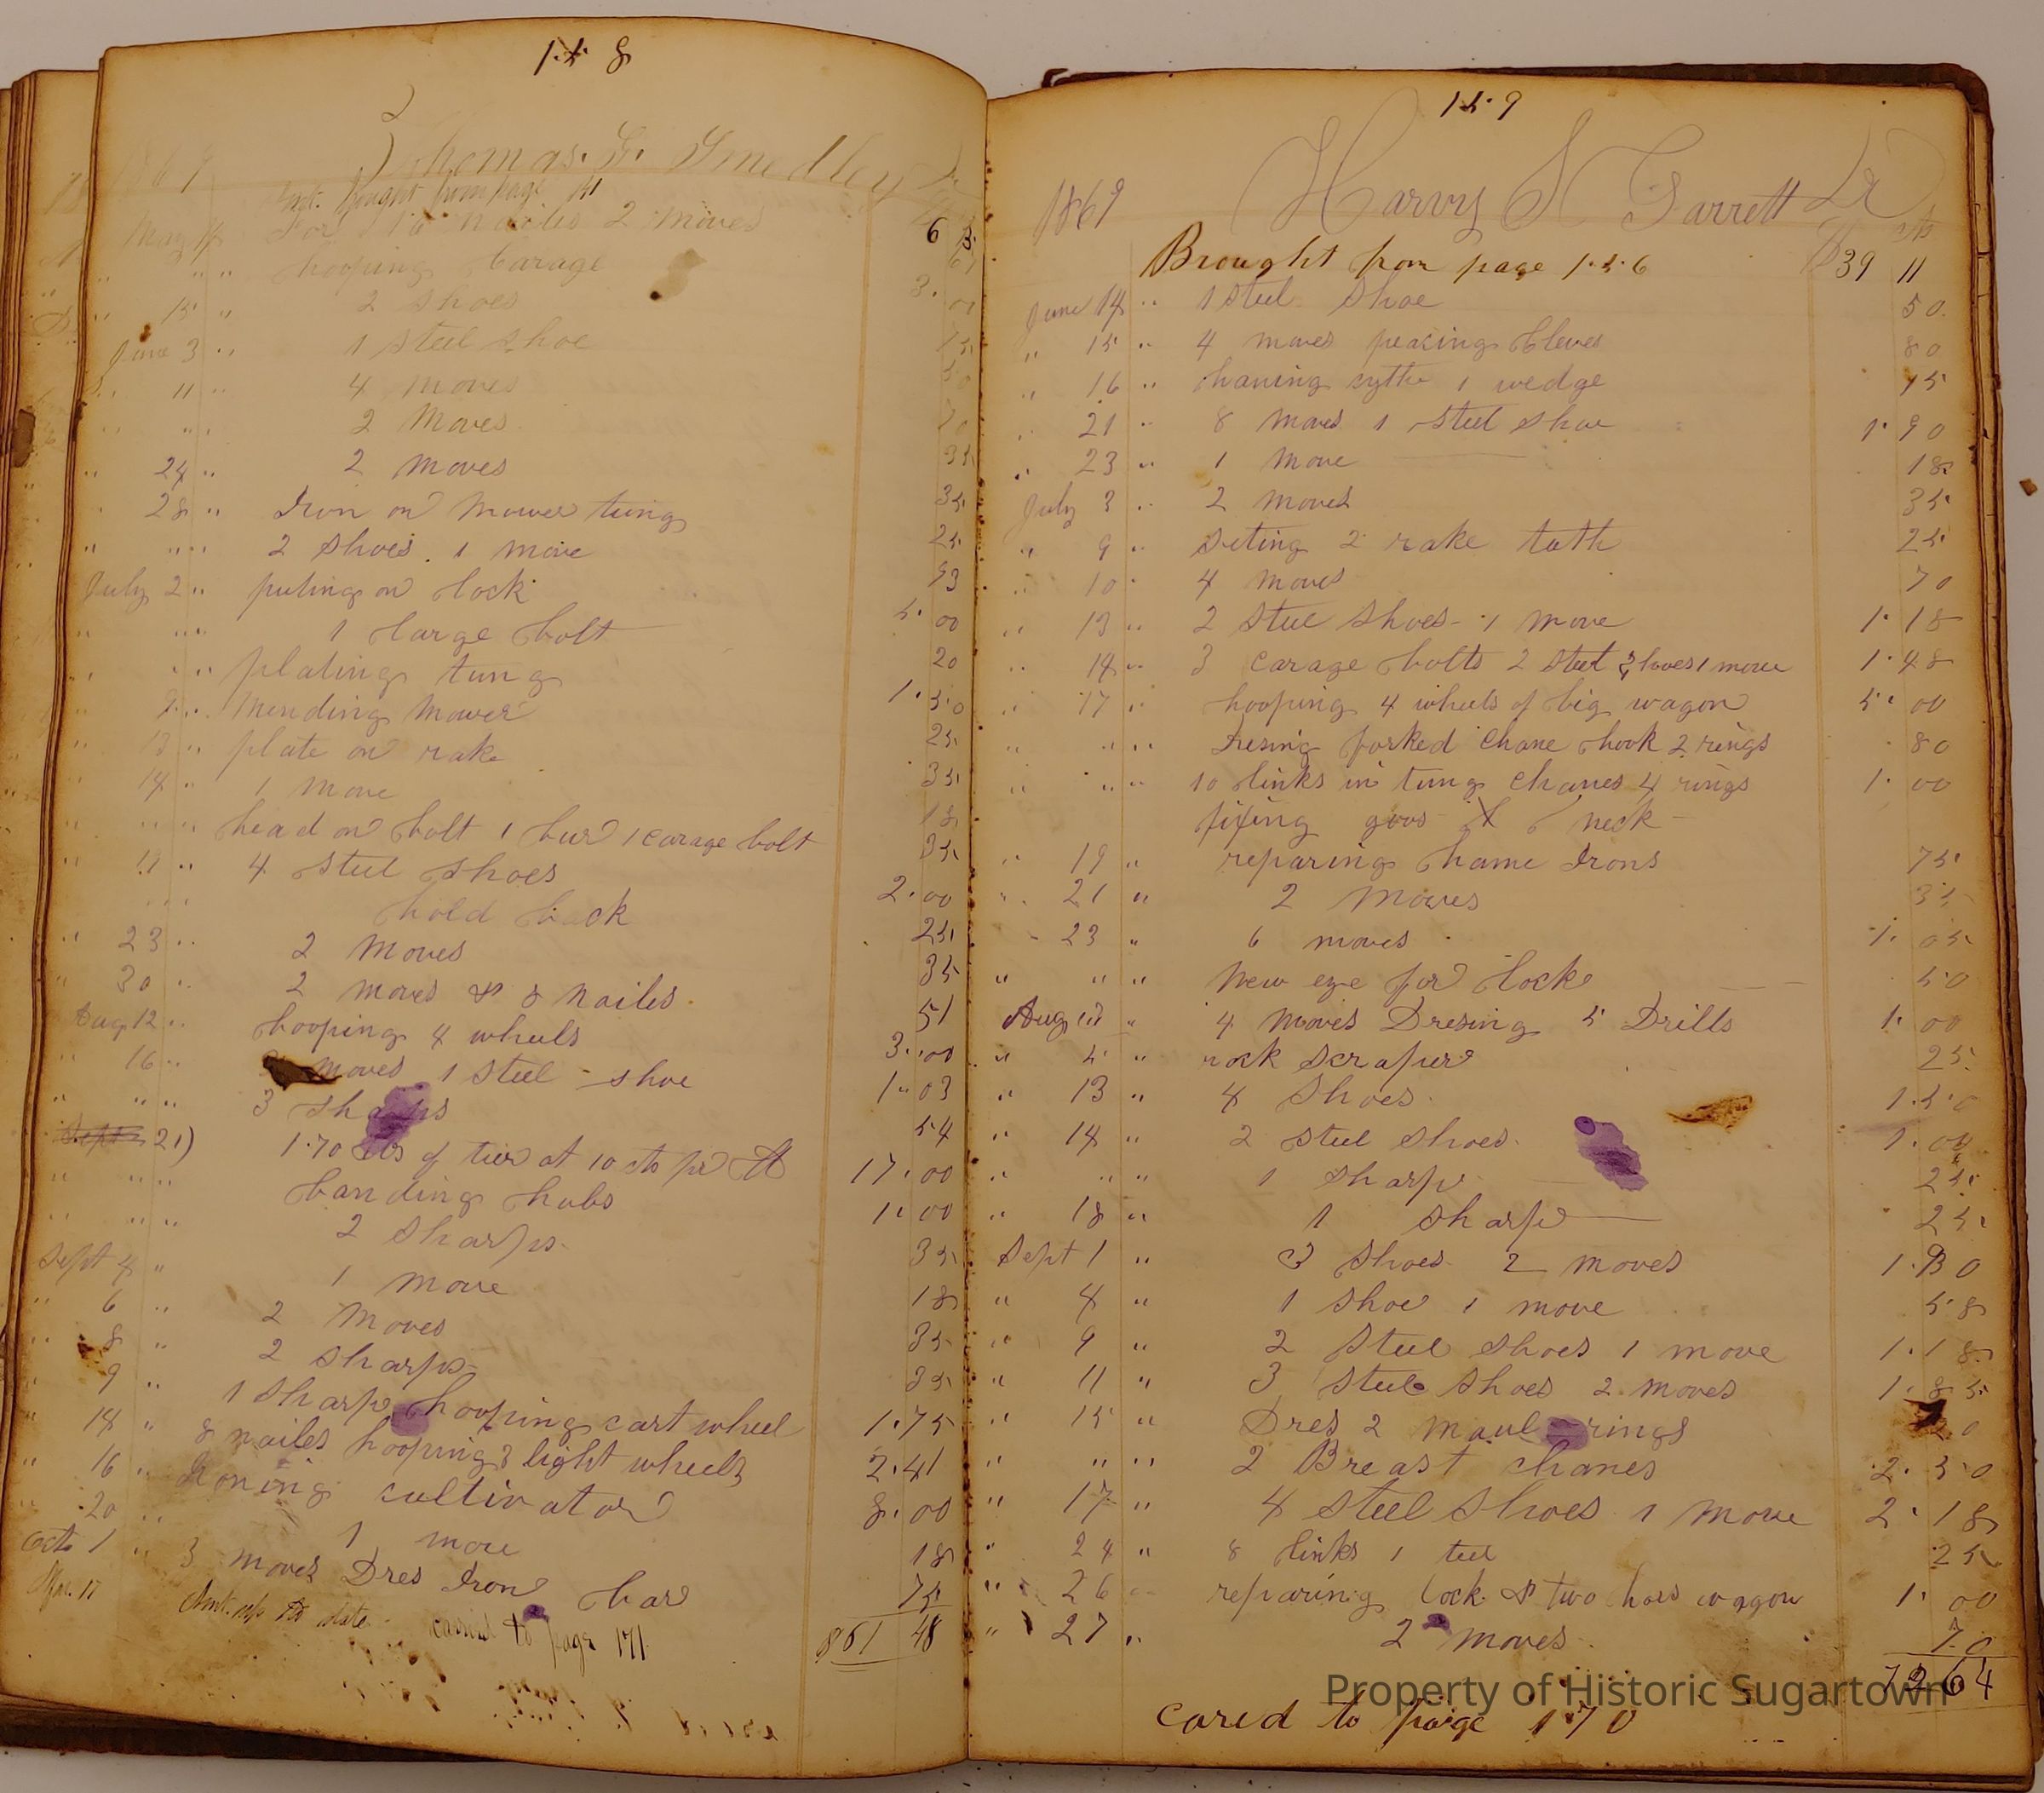 158
Thomas. G. Smedley Dr
1869
Amt. Bought from page 141 6
May 14 " For 16 nailes 2 moves
" " " hooping barage 3. 00
" 15 " 2 shoes
June 3 " 1 steel shoe
" 11 " 4 moves
" " " 2 Moves
" 24 " 2 moves 35
" 28 " Iron on Mower tung 25
" " " 2 shoes. 1 move 93
July 2 " puting on lock 5. 00
" " " 1 large bolt 20
" " " plating tung 1. 50
" 9 " Mending Mower 25
" 13 " plate on rake 35
" 14 " 1 move 18
" " " head on bolt 1 bur 1 carage bolt 35
" 17 " 4 steel shoes 2. 00
" " " hold back 25
" 23 " 2 Moves 35
" 30 " 2 moves & 8 nailes 51
Aug 12 " hooping 4 wheels 3. 00
" 16 " moves 1 steel shoe 1. 03
" " " 3 sharps 54
Sept 21) 1.70 lbs of tier at 10 cts pr lb 17. 00
" " " banding hubs 1. 00
" " " 2 sharps 35
Sept 4 " 1 move 18
" 6 " 2 moves 35
" 8 " 2 sharps 35
" 9 " 1 sharp hooping cart wheel 1.75
" 14 " 8 nailes hooping 3 light wheels 2.41
" 16 " Ironing cultivator 8. 00
" 20 " 1 move 18
Octo 1 " 3 moves Dres Iron bar 75
Apr. 17 Amt. up to date carried to page 171 $61 48
159
1869 Harvy N Garrett Dr
Brought from page 156 $39 11
June 14 " 1 steel shoe 50
" 15 " 4 moves peacing Cleves 80
" 16 " haning sythe 1 wedge 75
" 21 " 8 moves 1 steel shoe 1. 90
" 23 " 1 move 18
July 3 " 2 moves 35
" 9 " seting 2 rake tuth 25
" 10 " 4 moves 70
" 13 " 2 steel shoes 1 move 1. 18
" 14 " 3 carage bolts 2 steel shoes 1 move 1. 48
" 17 " hooping 4 wheels of big wagon 5. 00
" " " Dresing forked chane hook 2 rings 80
" " " 10 links in tung chanes 4 rings 1. 00
fixing goos neck
" 19 " reparing hame Irons 75
" 21 " 2 moves 35
" 23 " 6 moves 1. 05
" " " New eye for lock 50
Aug " 4 moves Dresing 5 Drills 1. 00
" 5 " rock scraper 25
" 13 " 4 shoes 1.50
" 14 " 2 steel shoes 1. 00
" " " 1 sharp 25
" 18 " 1 sharp 25
Sept 1 " 3 shoes 2 moves 1. 30
" 4 " 1 shoe 1 move 58
" 9 " 2 steel shoes 1 move 1. 18
" 11 " 3 steel shoes 2 moves 1. 85
" 15 " Dres 2 maul rings 20
" " " 2 Breast chanes 2. 50
" 17 " 4 steel shoes 1 move 2. 18
" 24 " 8 links 1 tee 25
" 26 " reparing lock & two hors wagon 1. 00
" 27 " 2 moves 70
72 64
cared to paige 170
Property of Historic Sugartown